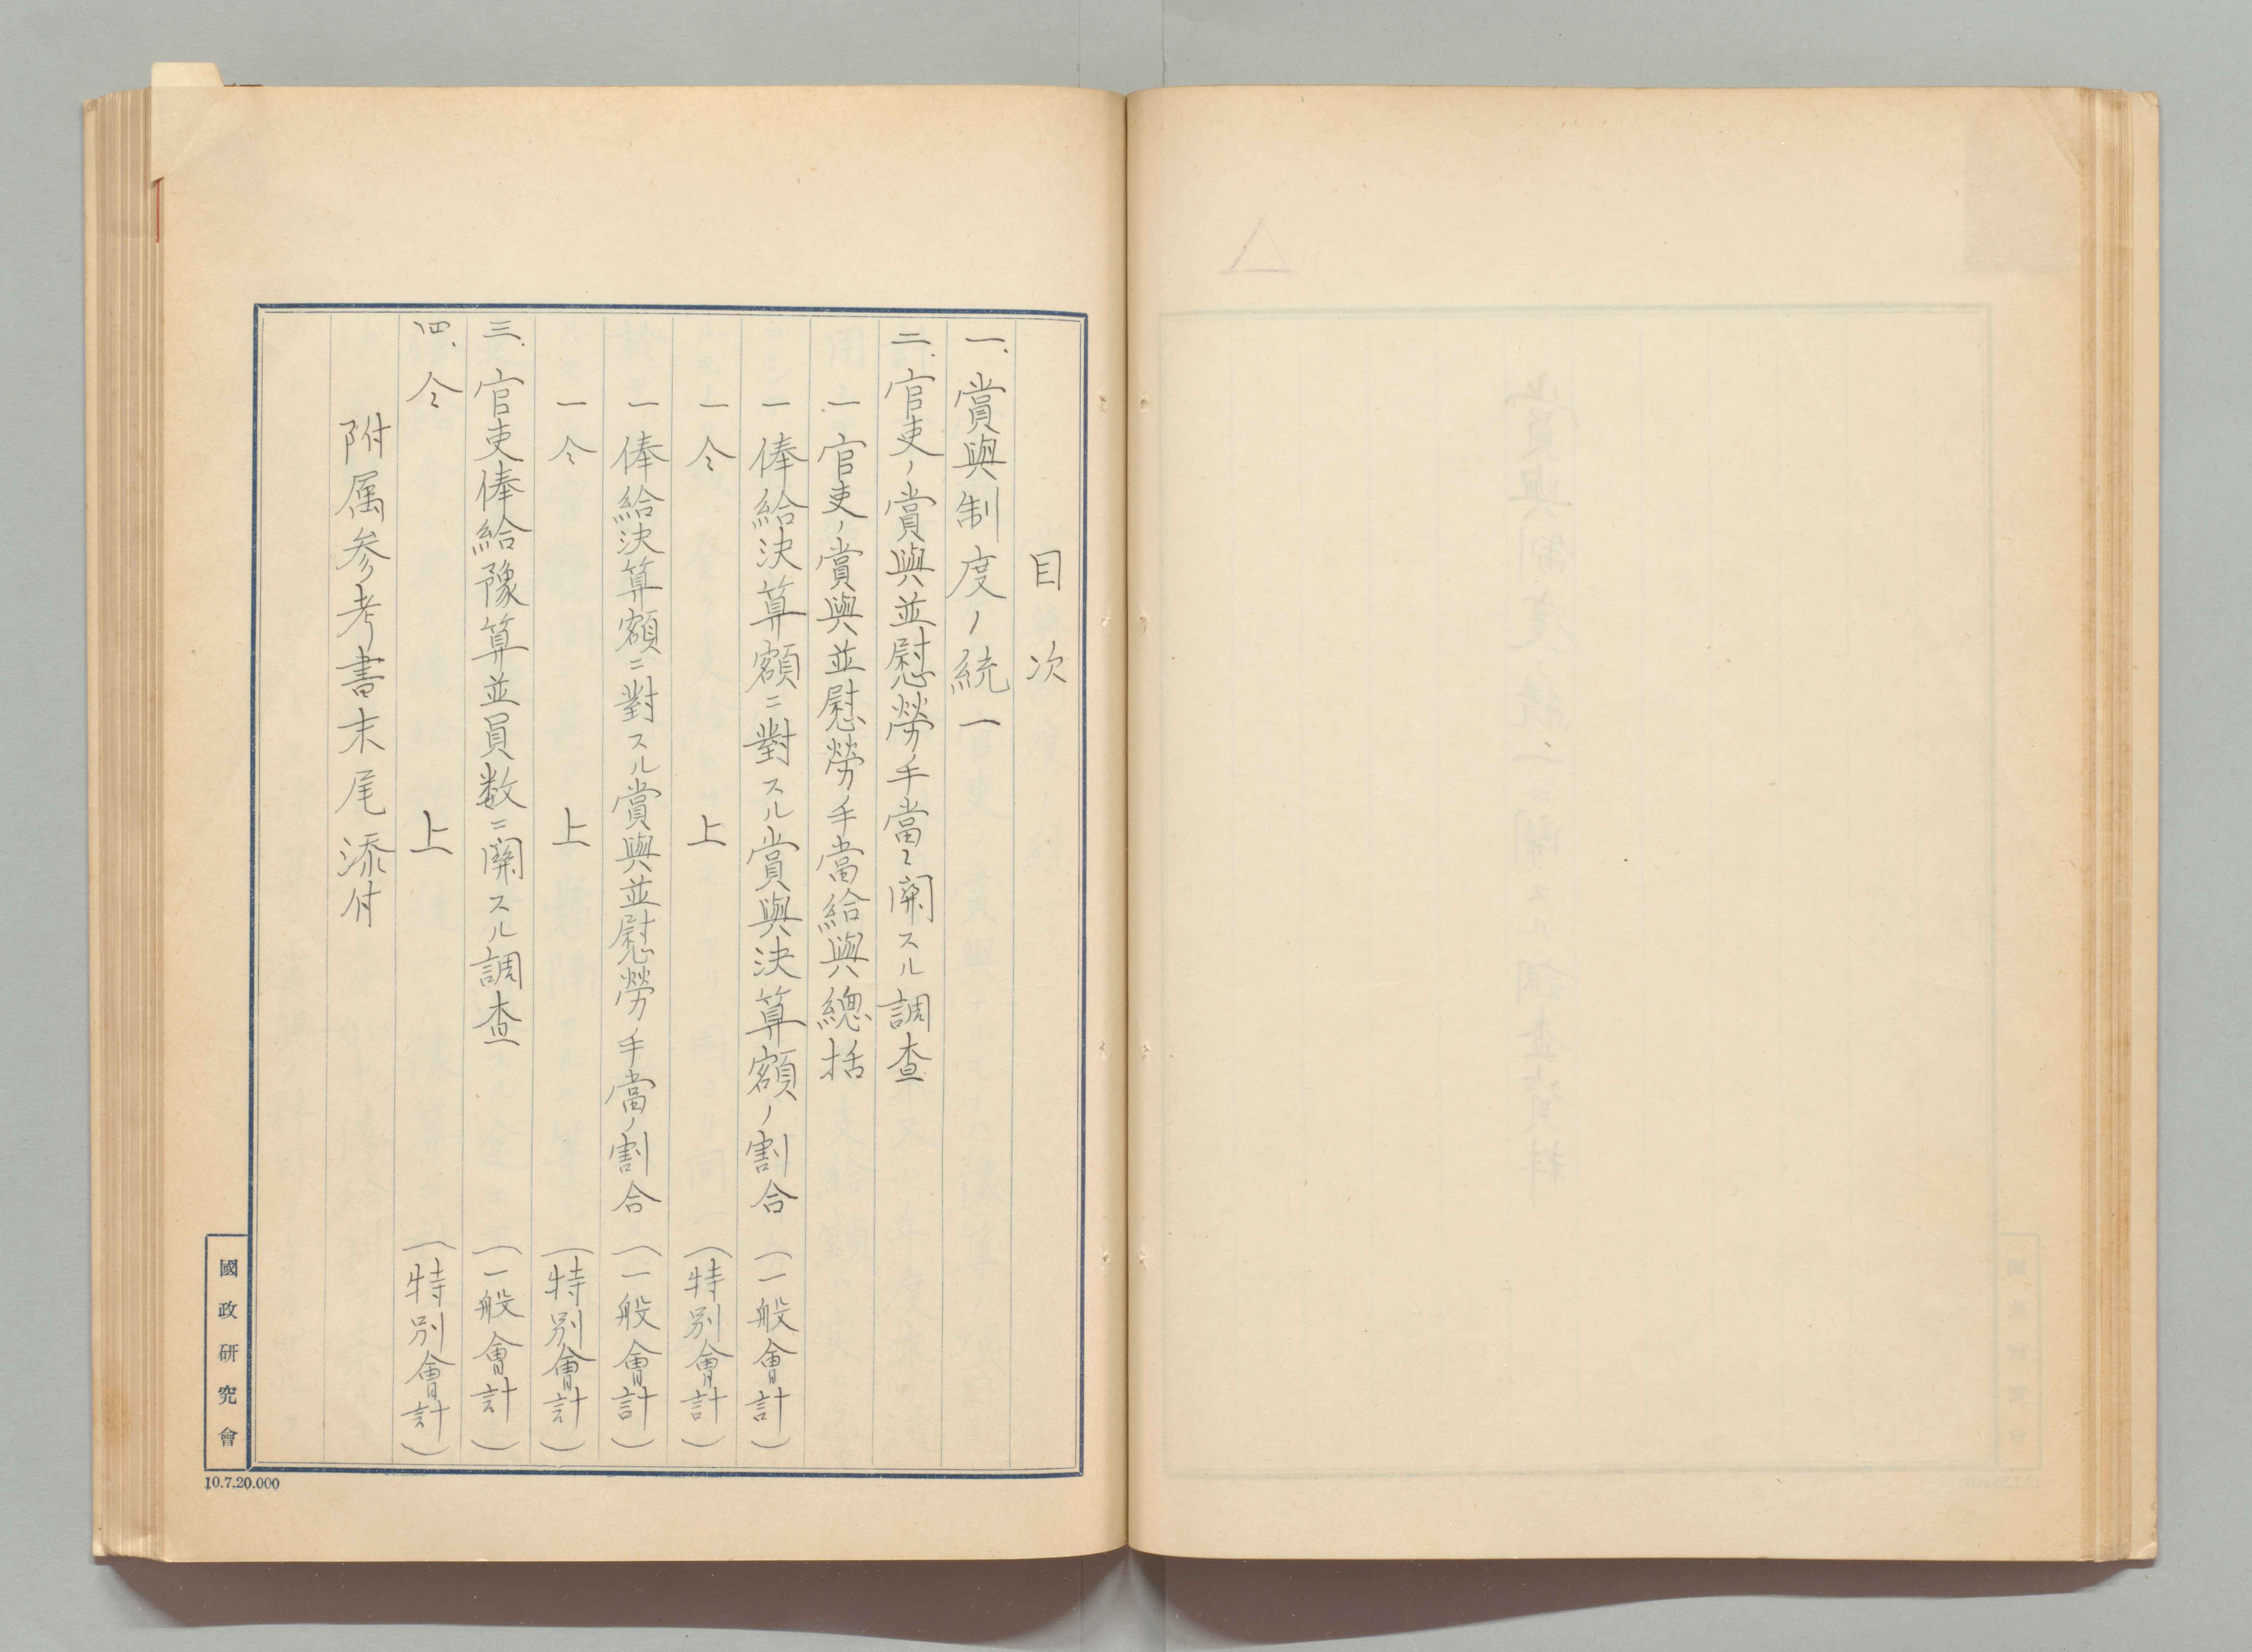 目次
一、賞與制度ノ統一
二、官吏ノ賞與並慰勞手當ニ關スル調査
一官吏ノ賞與並慰勞手當給與總括
一俸給決算額ニ對スル賞與決算額ノ割合(一般會計)
一仝上(特別會計)
一俸給決算額ニ對スル賞與並慰勞手當ノ割合(一般會計)
一仝上(特別會計)
三、官吏俸給豫算並員数ニ關スル調査(一般會計)
四、仝上(特別會計)
附属参考書末尾添付
國政研究會
10.7.20.000